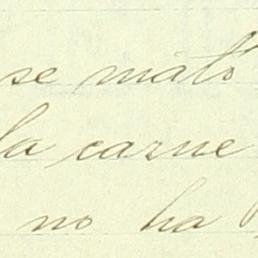 se mató
la carne
no ha